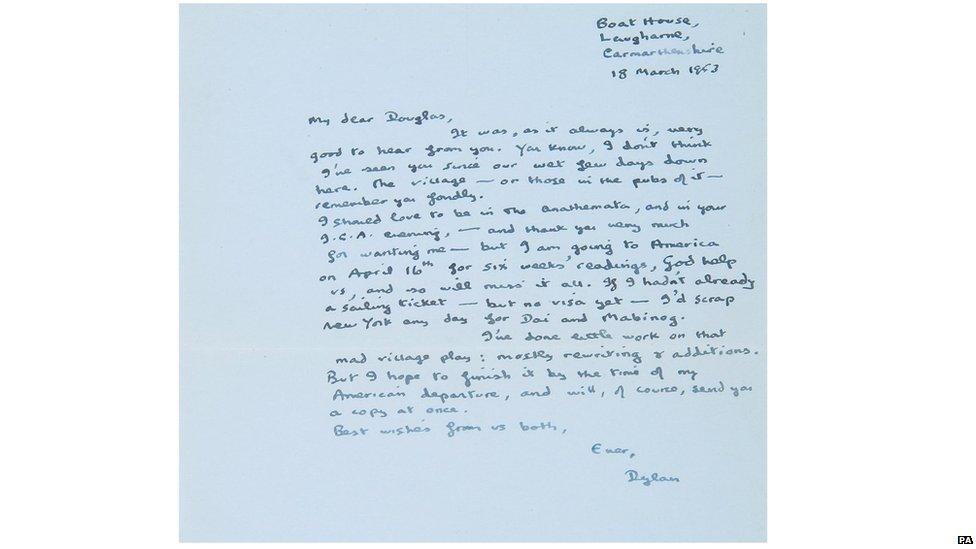 Boat House,
Laugharne,
Carmarthenshire
18 March 1953
My dear Douglas,
It was, as it always is, very
good to hear from you. You know, I don't think
I've seen you since our wet few days down
here. The village — or those in the pubs of it —
remember you fondly.
I should love to be in The Anathemata, and in your
I.C.A. evening, — and thank you very much
for wanting me — but I am going to America
on April 16th for six weeks' readings, God help
us, and so will miss it all. If I hadn't already
a sailing ticket — but no visa yet — I'd scrap
New York any day for Dai and Mabinog.
I've done little work on that
mad village play: mostly rewriting & additions.
But I hope to finish it by the time of my
American departure, and will, of course, send you
a copy at once.
Best wishes from us both,
Ever,
Dylan
PA